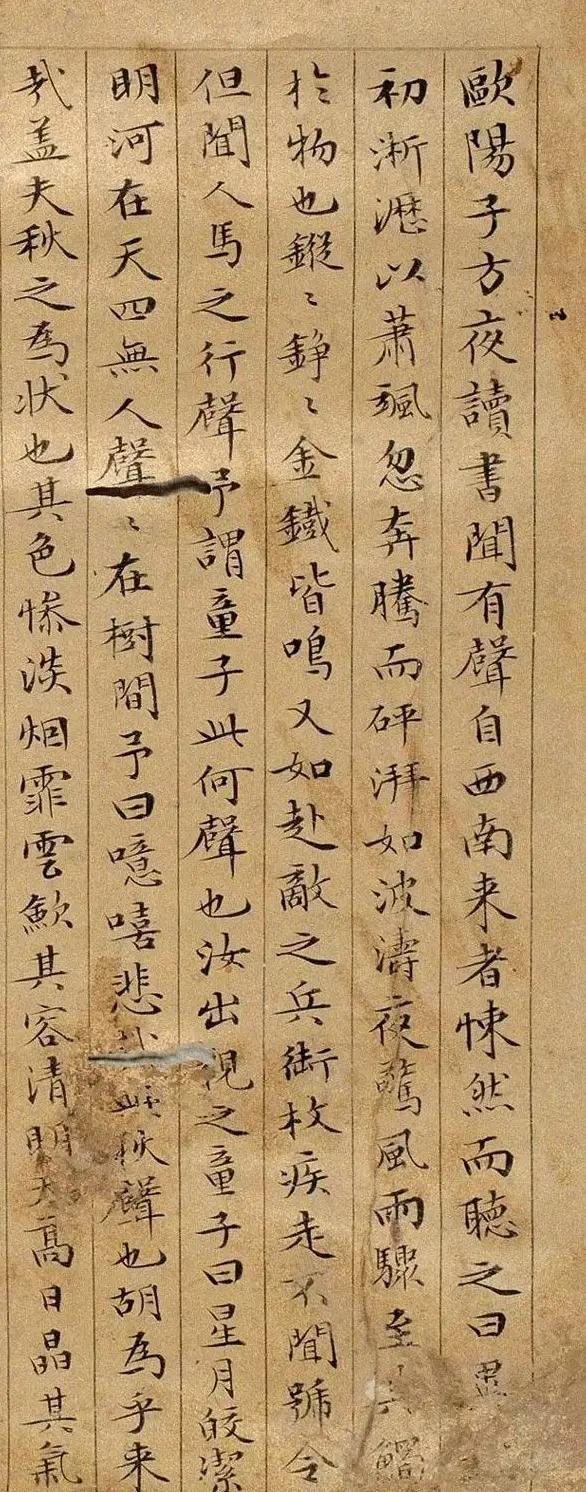 歐陽子方夜讀書聞有聲自西南来者悚然而聴之曰
初淅瀝以蕭颯忽奔騰而砰湃如波濤夜驚風雨驟至其觸
扵物也鏦〻錚〻金鐵皆鳴又如赴敵之兵銜枚疾走不聞號令
但聞人馬之行聲予謂童子此何聲也汝出視之童子曰星月皎潔
明河在天四無人聲〻在樹間予曰噫嘻悲哉此秋聲也胡為乎来
哉盖夫秋之為状也其色惨淡烟霏雲歛其容清明天高日晶其氣